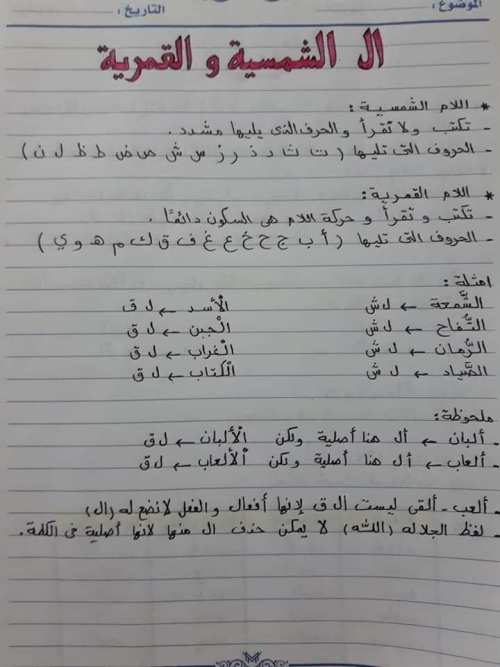 الموضوع :
التاريخ :
ال الشمسية و القمرية
* اللام الشمسية :
- تكتب ولا تقرأ والحرف الذى يليها مشدد .
- الحروف التى تليها ( ت ث د ذ ر ز س ش ص ض ط ظ ل ن )
* اللام القمرية :
- تكتب و تقرأ و حركة اللام هى السكون دائمًا .
- الحروف التى تليها ( أ ب ج ح خ ع غ ف ق ك م هـ و ي )
امثلة :
الشَّمعة ← ل ش    الْأسد ← ل ق
التُّفاح ← ل ش    الْجبن ← ل ق
الرُّمان ← ل ش    الْغراب ← ل ق
الصَّياد ← ل ش    الْكتاب ← ل ق
ملحوظة :
- ألبان ← أل هنا أصلية ولكن الْألبان ← ل ق
- ألعاب ← أل هنا أصلية ولكن الْألعاب ← ل ق
- ألعب - ألقى ليست ال ق لإنها أفعال والفعل لا نضع له (ال)
- لفظ الجلاله (الله) لا يمكن حذف ال منها لانها أصلية فى الكلمة .